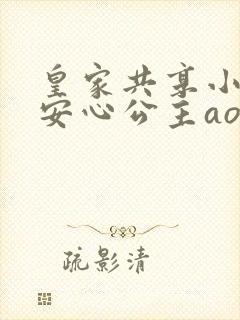 皇家共享小
安心公主ao
疏影清